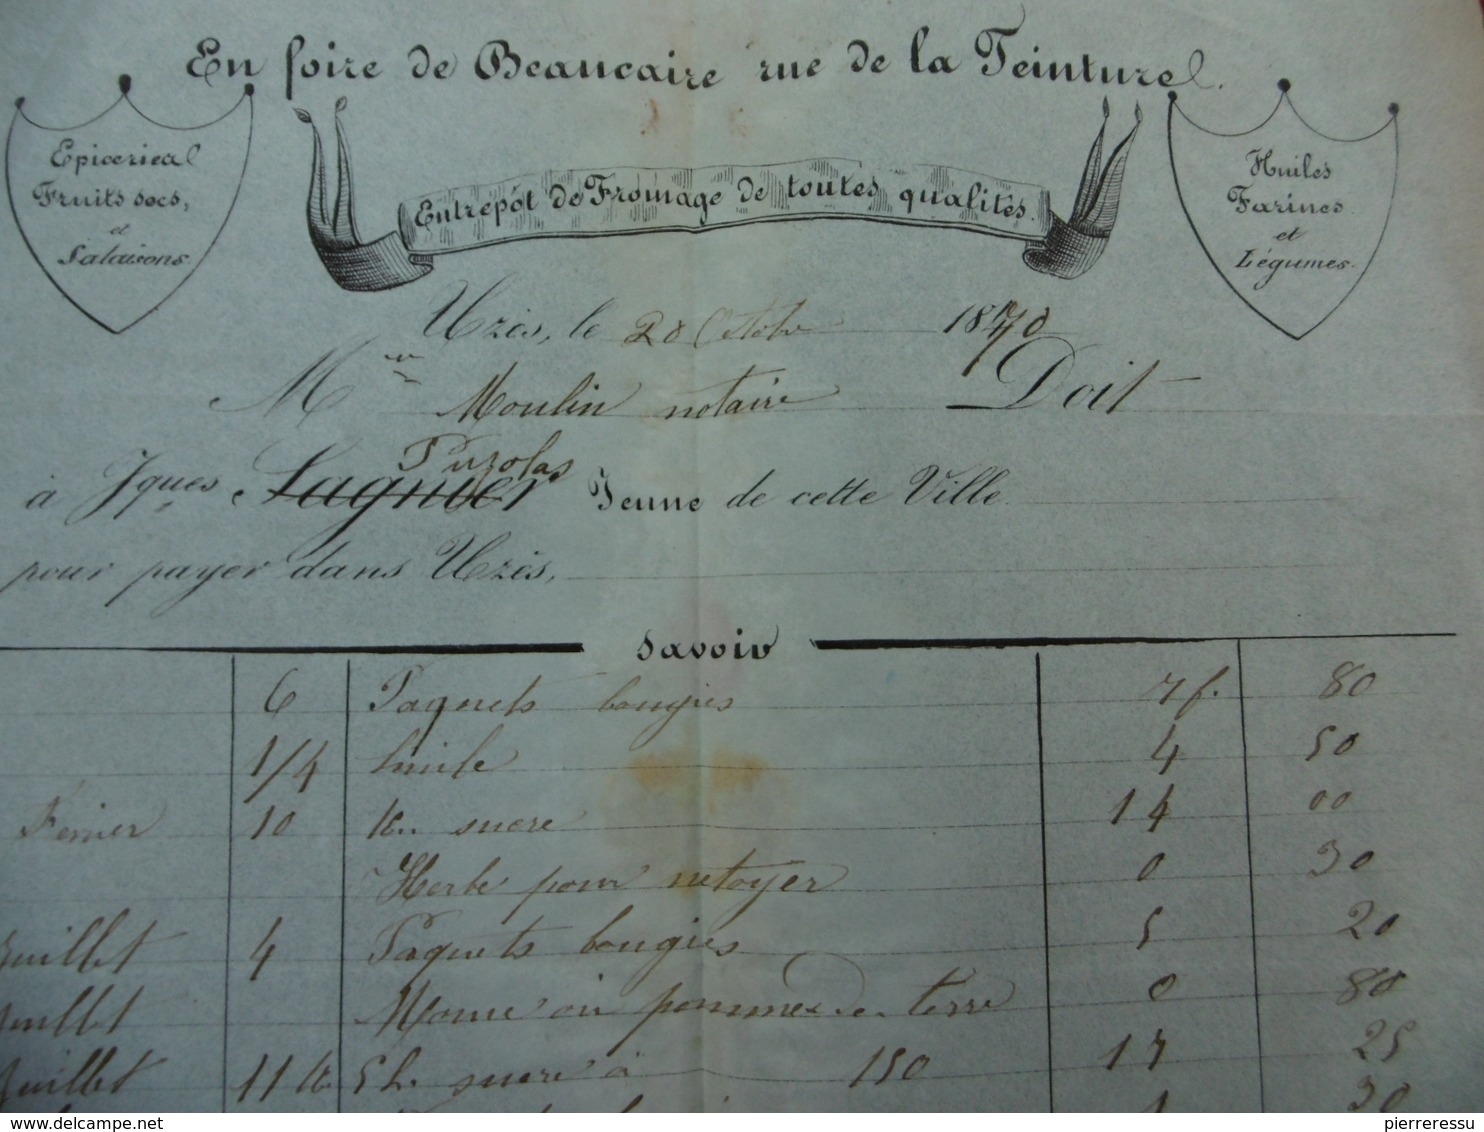 En foire de Beaucaire rue de la Teinture.
Epicerie
Fruits secs,
et
Salaisons
Entrepôt de Fromage de toutes qualités.
Huiles
Farines
et
Légumes.
Uzès, le 20 Octobre 1870
Mr Moulin notaire Doit
Puzolas
à Jques Lagnier Jeune de cette Ville
pour payer dans Uzès,
Savoir
6 Paquets bougies 7f. 80
1/4 huile 4 50
Février 10 K. sucre 14 00
Herbe pour netoyer 0 30
Juillet 4 Paquets bougies 5 20
Juillet pommes de terre 0 80
Juillet 11 K 5 h. sucre à 150 17 25
30
delcampe.net
pierreressu